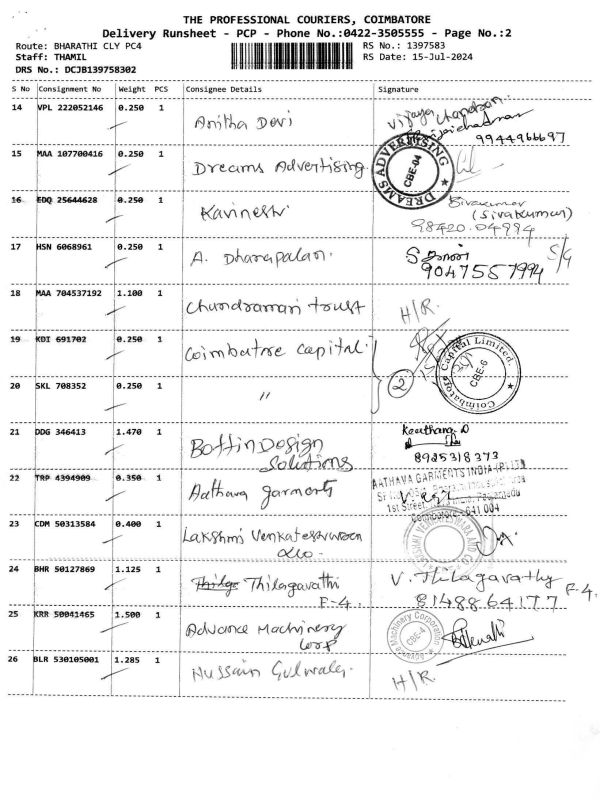 THE PROFESSIONAL COURIERS, COIMBATORE
Delivery Runsheet - PCP - Phone No.:0422-3505555 - Page No.:2
Route: BHARATHI CLY PC4 RS No.: 1397583
Staff: THAMIL RS Date: 15-Jul-2024
DRS No.: DCJB139758302
S No Consignment No Weight PCS Consignee Details Signature
14 VPL 222052146 0.250 1 Anitha Devi Vijaya Chandran
9944966697
15 MAA 107700416 0.250 1 Dreams Advertising DREAMS ADVERTISING CBE-04
16 EDQ 25644628 0.250 1 Kavinesh Sivakumar
(Sivakumar)
98420.04994
17 HSN 6068961 0.250 1 A. Dhanapalan. S/G
9047557994
18 MAA 704537192 1.100 1 Chandramari trust H/R.
19 KDI 691702 0.250 1 Coimbatore capital. 2 Coimbatore Capital Limited. CBE-6
20 SKL 708352 0.250 1 "
21 DDG 346413 1.470 1 Bottin Design Keerthana D
Solutions 8925318373
22 TRP 4394909 0.350 1 Aathava garments AATHAVA GARMENTS INDIA (P) LTD
1st Street,
Coimbatore - 641 004
23 CDM 50313584 0.400 1 Lakshmi Venkateshwara
24 BHR 50127869 1.125 1 Thilaga Thilagavathi V. Thilagavathy
F-4. 8148864177 F-4.
25 KRR 50041465 1.500 1 Advance Machinery Advance Machinery Corporation CBE-4
Corp
26 BLR 530105001 1.285 1 Hussain Gulwaley. H/R.